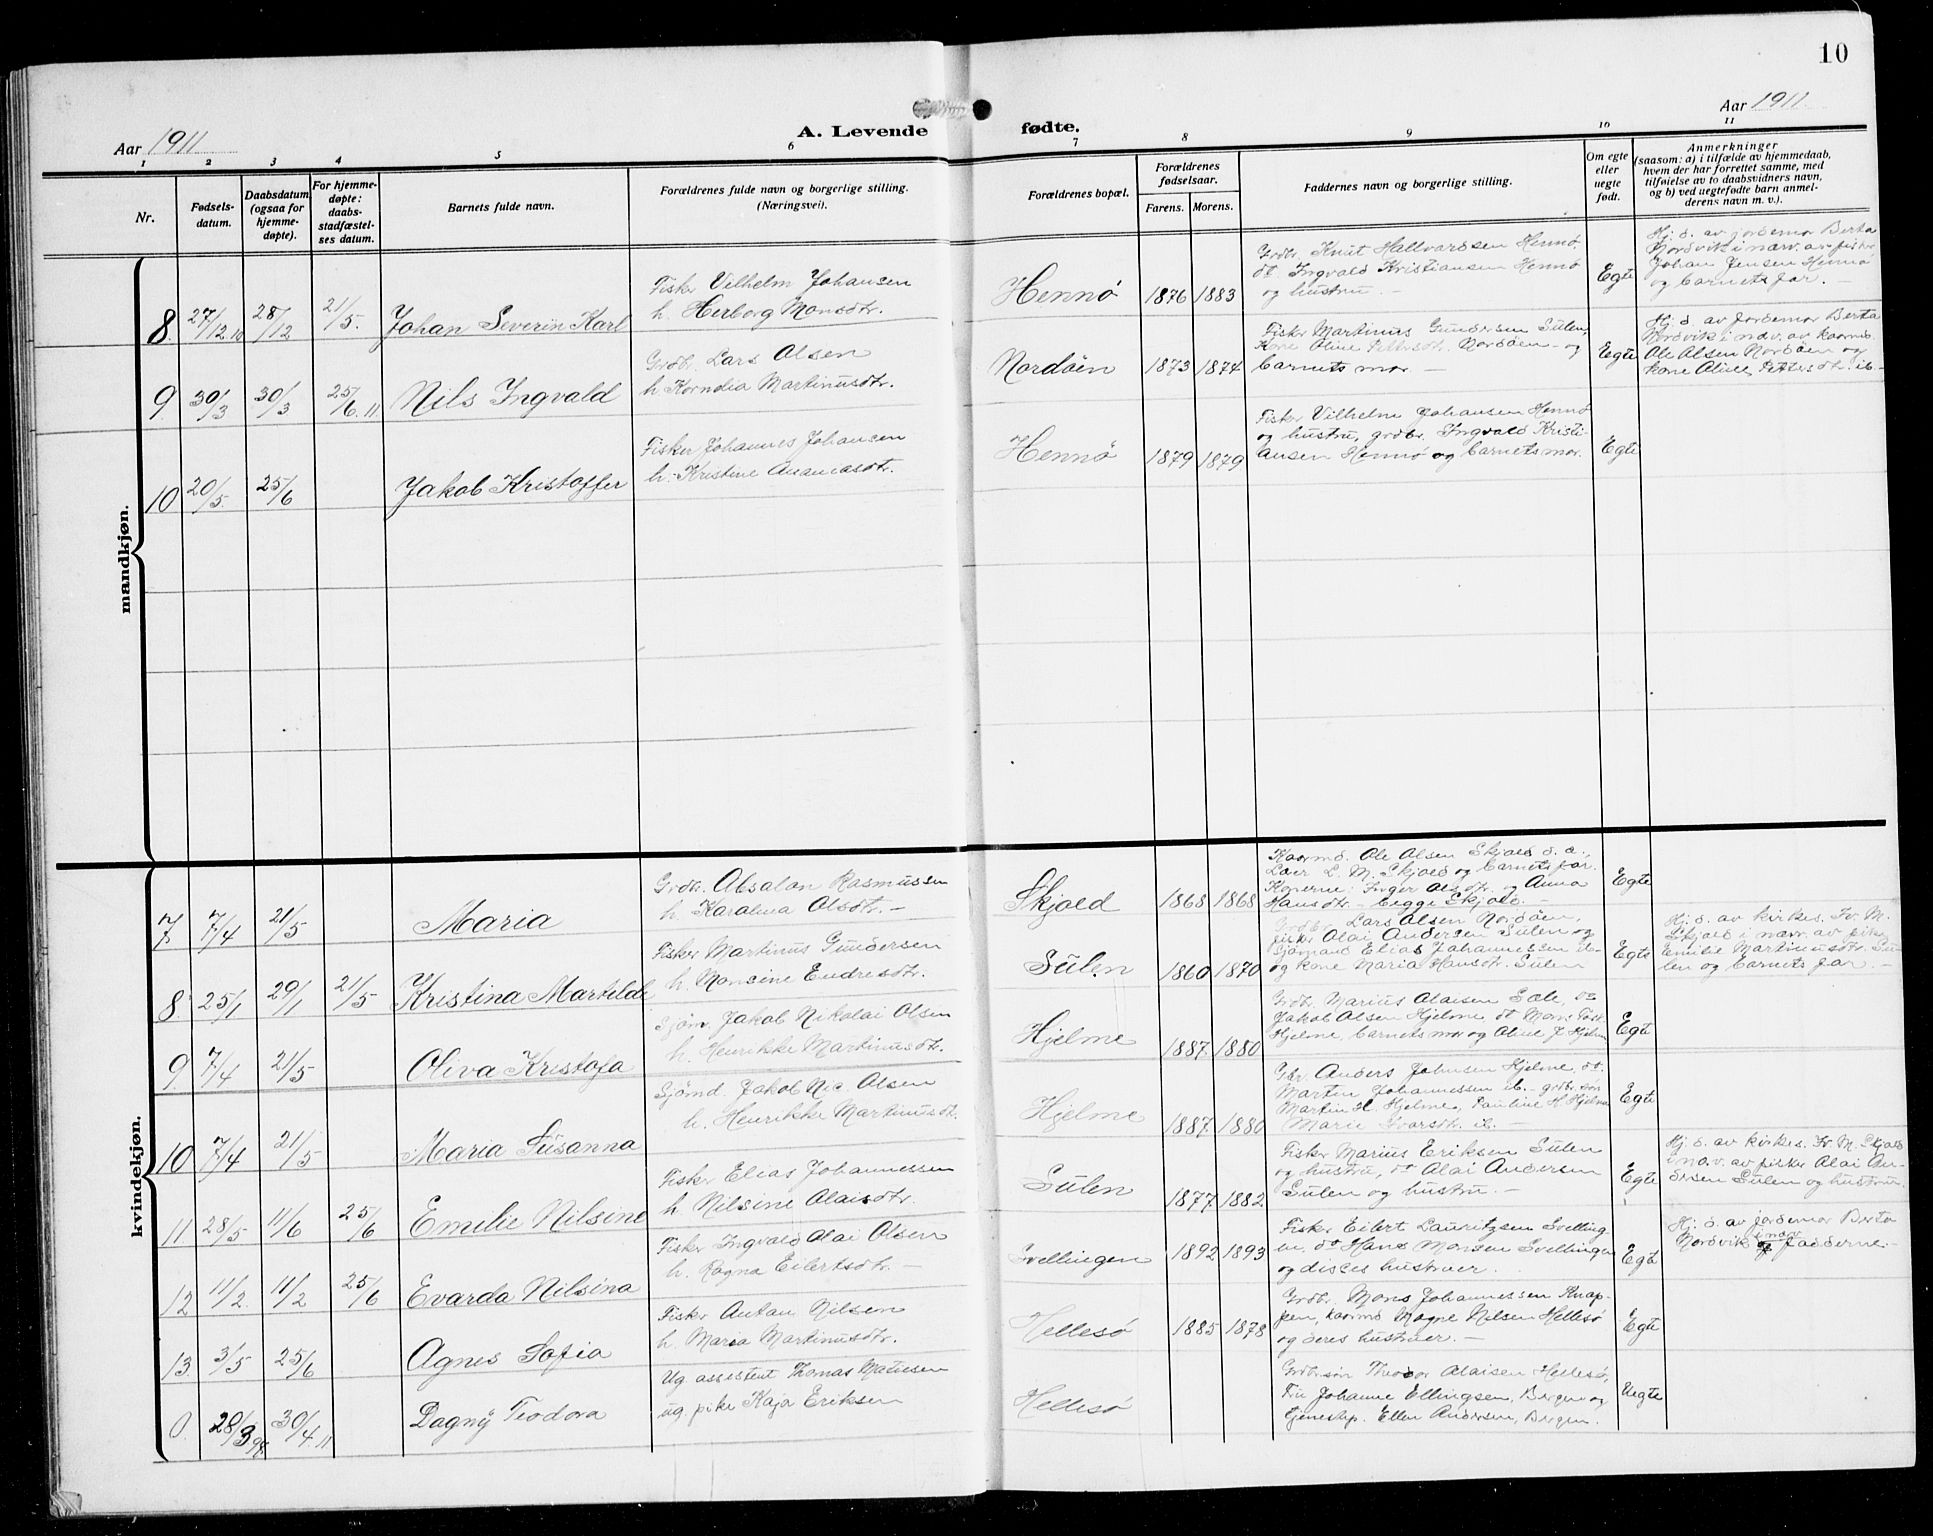 10
Aar 1911
A. Levende fødte.
Aar 1911
1 2 3 4 5 6 7 8 9 10 11
Nr.
Fødsels-
datum.
Daabsdatum
(ogsaa for
hjemme-
døpte).
For hjemme-
døpte:
daabs-
stadfæstel-
ses datum.
Barnets fulde navn.
Forældrenes fulde navn og borgerlige stilling.
(Næringsvei).
Forældrenes bopæl.
Forældrenes
fødselsaar.
Farens. Morens.
Faddernes navn og borgerlige stilling.
Om egte
eller
uegte
født.
Anmerkninger
(saasom: a) i tilfælde av hjemmedaab,
hvem der har forrettet samme, med
tilføielse av to daabsvidners navn,
og b) ved uegtefødte barn anmel-
derens navn m. v.).
mandkjøn.
8. 27/12 10 28/12 21/5. Johan Severin Karl
Fisker Vilhelm Johansen
h. Herborg Monsdtr.
Hennö 1876 1883
Grdbr. Knut Hallvardsen Hennö
do Ingvald Kristiansen Hennö
og hustru. —
Egte
Hj. d. av jordemor Berta
Nordvik i nærv. av fisker
Johan Jensen Hennö
og barnets far. —
9. 30/3 30/3 25/6. 11. Nils Ingvald
Grdbr. Lars Olsen
h. Korndia Martinusdtr.
Nordöen 1873 1874
Fisker Martinus Gundersen Sulen,
Kone Oline Pettersdt. Nordöen - og
barnets mor. —
Egte
Hj. d. av Jordemor Berta
Nordvik i nærv. av kaarmd.
Ole Olsen Nordöen og
kone Oline Pettersdt. ib. —
10 20/5. 25/6 Jakob Kristoffer
Fisker Johannes Johansen
h. Kristine Ananiasdtr.
Hennö 1879 1879
Fisker Vilhelm Johansen Hennö
og hustru, grdbr. Ingvald Kristi-
ansen Hennö og barnets mor.
Egte
kvindekjøn.
7. 7/4 21/5 Maria
Grdbr. Absalon Rasmussen
h. Karolina Olsdtr. —
Skjold 1868 1868
Kaarmd. Ole Olsen Skjold d. æ.,
Lær L. M. Skjold og barnets far.
Konerne: Inger Olsdtr. og Anna
Hansdtr. — begge Skjold. —
Egte
8 25/1 29/1 21/5 Kristina Martilde
Fisker Martinus Gundersen
h. Monsine Endresdtr.
Sulen 1860 1870
Grdbr. Lars Olsen Nordöen,
fisker Olai Andersen Sulen og
Sjömand Elias Johannessen ib.
og kone Maria Hansdtr. Sulen
Egte
Hj. d. av kirkes. Fr. M.
Skjold i nærv. av pike
Emilie Martinusdtr. Su-
len og barnets far. —
9 7/4 21/5 Oliva Kristofa
Sjöm. Jakob Nikolai Olsen
h. Henrikke Martinusdtr.
Hjelme 1887 1880
Grdbr. Marius Olaisen Sæle, do
Jakob Olsen Hjelme do Mons
Hjelme, barnets mor og Oline J. Hjelme
Egte
10 7/4 21/5 Maria Susanna
Sjömd. Jakob Nic. Olsen
h. Henrikke Martinusdt.
Hjelme 1887 1880
Gbr. Anders Johnsen Hjelme, do.
Martin Johannessen ib. - grdbr. sön
Martin H. Hjelme, Pauline H. Hjelme
Marie Ivarsdt. ib. —
Egte
11 28/5 11/6 25/6 Emilie Nilsine
Fisker Elias Johannessen
h. Nilsine Olaisdtr.
Sulen 1877 1882
Fisker Marius Eriksen Sulen
og hustru, do Olai Andersen
Sulen og hustru. —
Egte
Hj. d. av kirkes. Fr. M. Skjold
i nærv. av fisker Olai An-
dersen Sulen og hustru.
12 11/2. 11/2 25/6 Evarda Nilsina
Fisker Ingvald Olai Olsen
h. Ragna Eilertsdtr. —
Svellingen 1892 1893
Fisker Eilert Lauritzsen Svelling-
en, do Hans Monsen Svellingen
og disses hustruer.
Egte
Hj. d. av jordemor Berta
Nordvik i nærv. faddernes
13. 3/5 25/6 Agnes Sofia
Fisker Anton Nilsen
h. Maria Martinusdtr.
Hellesö 1885 1878
Grdbr. Mons Johannessen Knap-
pen, kaarmd Mogne Nilsen Hellesö
og deres hustruer. —
Egte
0. 28/3 98. 30/4. 11 Dagny Teodora
Ug. assistent Thomas Matiesen
ug. pike Kaja Eriksen
Hellesö
Grdbr.sön Theodor Olaisen Hellesö,
Fru Johanne Ellingsen, Bergen og
tjenestep. Ellen Andersen, Bergen.
Uegte